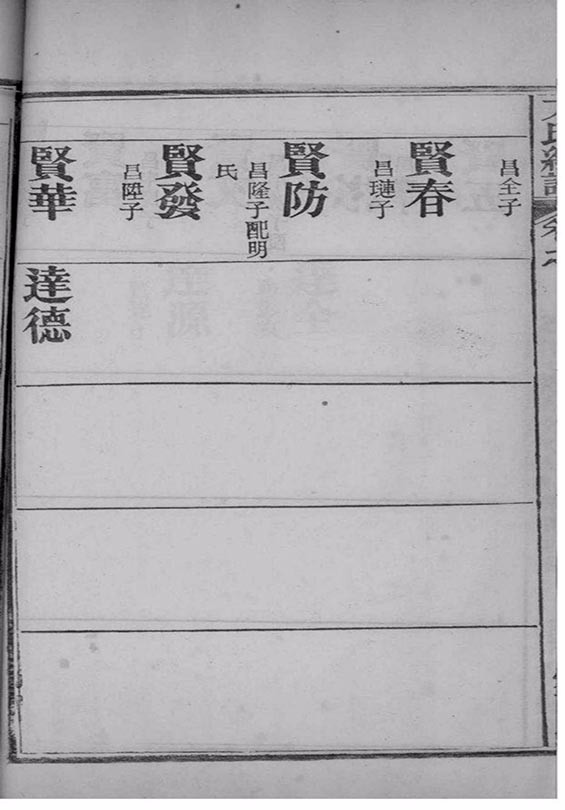 昌全子
賢春
昌璉子
賢防
昌隆子配明
氏
賢發
昌陞子
賢華
達德